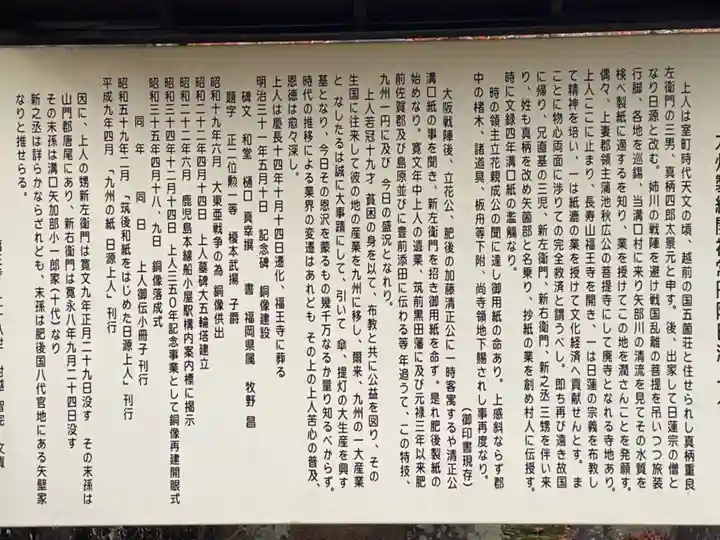 上人は室町時代天文の頃、越前の国五箇荘と住せられし真柄重良
左衛門の三男、真柄四郎太景元と申す。後、出家して日蓮宗の僧と
なり日源と改む。姉川の戦陣を避け戦国乱離の菩提を吊いつつ旅装
行脚、各地を巡錫、当溝口村に来り矢部川の清流を見てその水質を
検べ製紙に適するを知り、業を授けてこの地を潤さんことを発願す。
偶々、上妻郡領主蒲池秋広公の菩提寺にして廃寺となれる寺地あり。
上人ここに止まり、長寿山福王寺を開き、一は日蓮の宗義を布教し
て精神を培い、一は紙漉の業を授けて文化経済へ貢献せんとす。ま
ことに物心両面に渉りての完全救済と謂うべし。即ち再び遠き故国
に帰り、兄直基の三児、新左衛門、新右衛門、新之丞三甥を伴い来
り、姓も真柄を改め矢箇部と名乗り、抄紙の業を創め村人に伝授す。
時に文録四年溝口紙の濫觴なり。
時の領主立花親成公の聞に達し御用紙の命あり。上感斜ならず郡
中の楮木、諸道具、板舟等下附、尚寺領地下賜されし事再度なり。
(御印書現存)
大阪戦陣後、立花公、肥後の加藤清正公に一時客寓するや清正公
溝口紙の事を聞き、新左衛門を招き御用紙を命ず。是れ肥後製紙の
始めなり。寛文年中上人の遺業、筑前黒田藩に及び元禄三年以来肥
前佐賀郡及び島原並びに豊前添田に伝わる等年追うて、この特技、
九州一円に及び今日の盛況となれり。
上人若冠十九才 貧困の身を以て、布教と共に公益を図り、その
生国に往来して彼の地の産業を九州に移し、爾来、九州の一大産業
と なしたるは誠に大事蹟にして、引いて 傘、提灯の大生産を興す
基となり、今日その恩沢を蒙るもの幾千万なるか量り知るべからず。
時代の推移による業界の変遷はあれども その上の上人苦心の普及、
恩徳は愈々深し。
上人は慶長十四年十月十四日遷化、福王寺に葬る
明治三十一年五月十日 記念碑 銅像建設
碑文 和堂 樋口 真幸撰 書 福岡県属 牧野 昌
題字 正二位勲一等 榎本武揚 子爵
昭和十九年六月 大東亜戦争の為 銅像供出
昭和二十二年四月十四日 上人墓碑大五輪塔建立
昭和二十二年六月 鹿児島本線船小屋駅構内案内標に掲示
昭和三十四年十二月十四日 上人三五〇年記念事業として銅像再建開眼式
昭和三十五年四月十八、九日 銅像落成式
同 年 同 日 上人御伝小冊子刊行
昭和五十九年二月 「筑後和紙をはじめた日源上人」刊行
平成九年四月 「九州の紙 日源上人」刊行
因に、上人の甥新左衛門は寛文九年正月二十九日没す その末孫は
山門郡唐尾にあり、新右衛門は寛永八年九月二十四日没す
その末孫は溝口矢加部小一郎家(十代)なり
新之丞は詳らかならざれども、末孫は肥後国八代官地にある矢壁家
なりと推せらる。